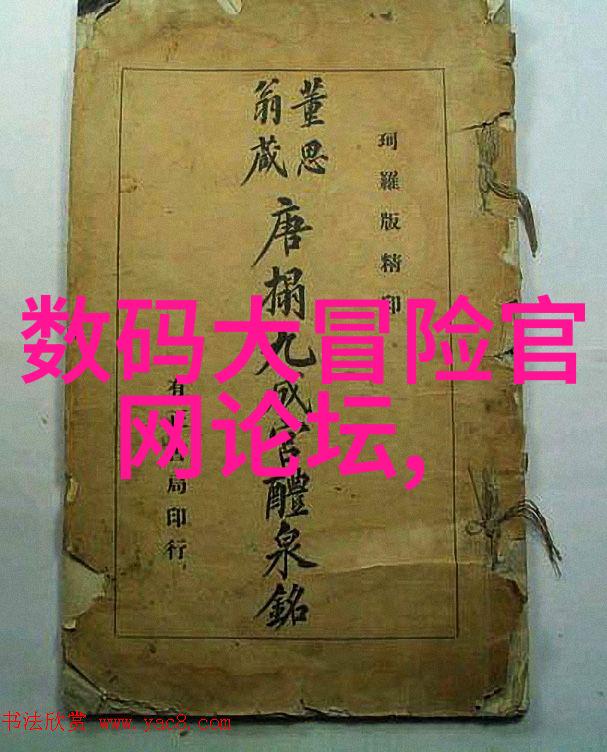 珂羅版精印
董思
翁藏
唐搨九成宮醴泉銘
有正書局印行
数码大冒险官
网论坛,
书法欣赏 www.yac8.com